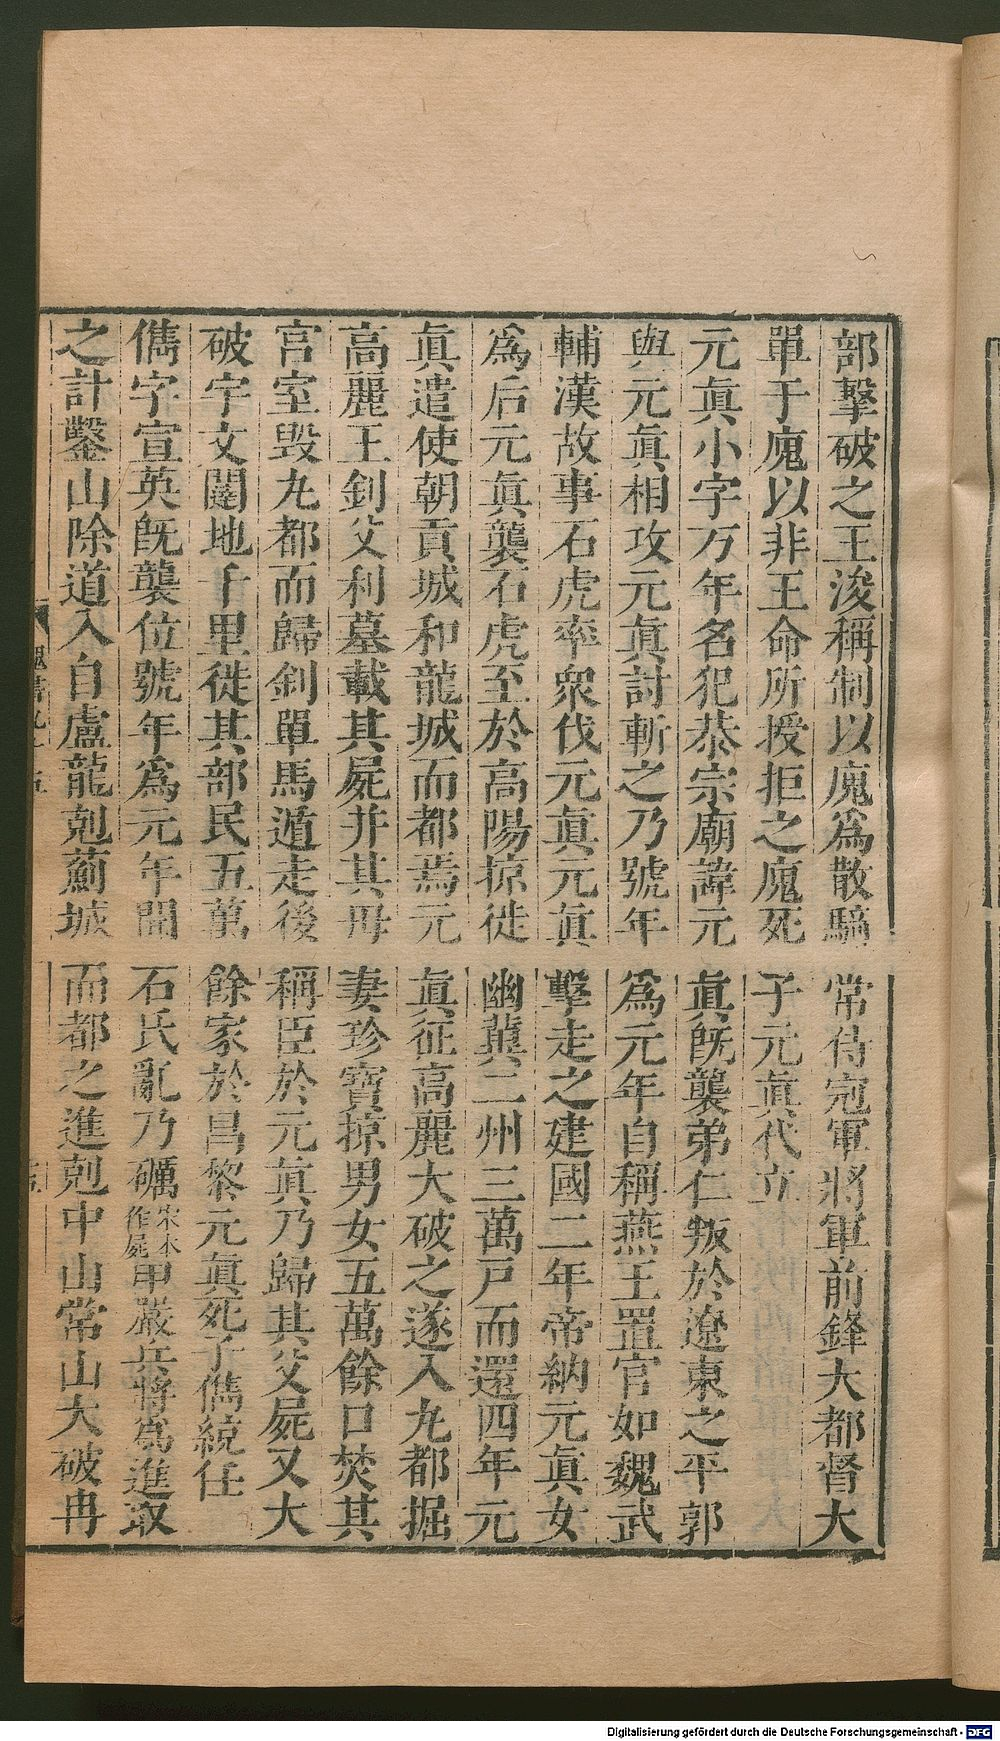 部擊破之王浚稱制以廆爲散騎常侍寇軍將軍前鋒大都督大
單于廆以非王命所授拒之廆死子元眞代立
元眞小字万年名犯恭宗廟諱元眞旣襲弟仁叛於遼東之平郭
與元眞相攻元眞討斬之乃號年爲元年自稱燕王置官如魏武
輔漢故事石虎率衆伐元眞元眞擊走之建國二年帝納元眞女
爲后元眞襲石虎至於高陽掠徙幽冀二州三萬戶而還四年元
眞遣使朝貢城和龍城而都焉元眞征高麗大破之遂入九都掘
高麗王釗父利墓載其屍并其母妻珍寶掠男女五萬餘口焚其
宮室毀九都而歸釗單馬遁走後稱臣於元眞乃歸其父屍又大
破宇文闢地千里徙其部民五萬餘家於昌黎元眞死子儁統任
儁字宣英旣襲位號年爲元年聞石氏亂乃礪宋本作屍甲嚴兵將爲進取
之計鑿山除道入自盧龍剋薊城而都之進剋中山常山大破冉
魏書九十五
Digitalisierung gefördert durch die Deutsche Forschungsgemeinschaft - DFG